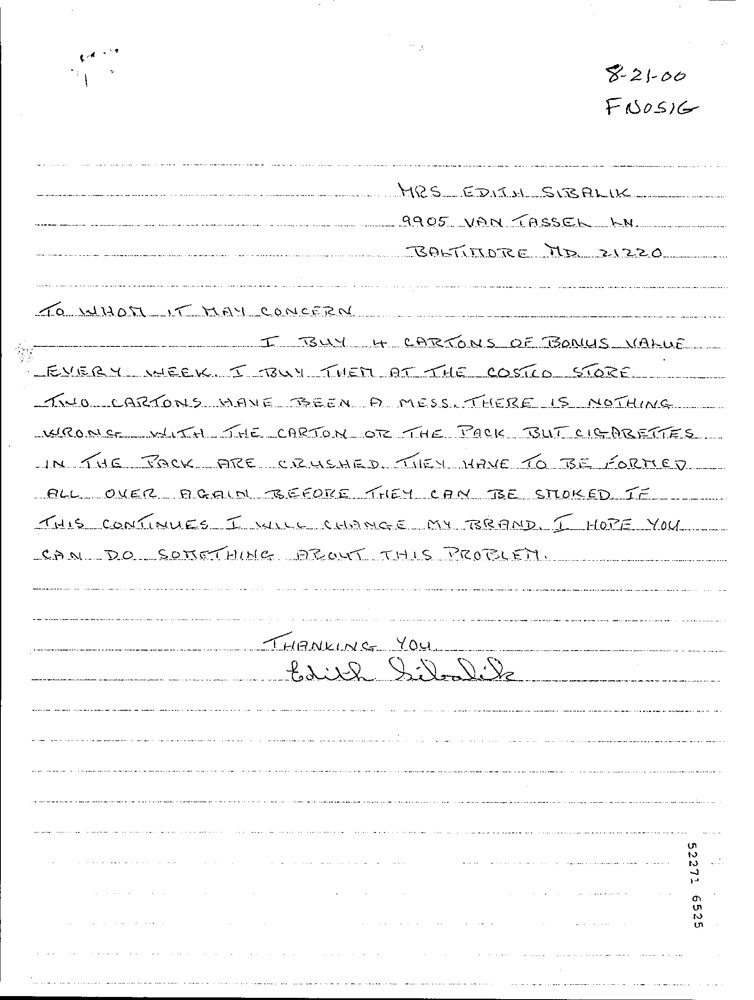 8-21-00
FNOSIG
MRS EDITH SIBALIK
9905 VAN TASSEL LN.
BALTIMORE MD. 21220
TO WHOM IT MAY CONCERN
I BUY 4 CARTONS OF BONUS VALUE
EVERY WEEK. I BUY THEM AT THE COSTCO STORE
TWO CARTONS HAVE BEEN A MESS. THERE IS NOTHING
WRONG WITH THE CARTON OR THE PACK BUT CIGARETTES
IN THE PACK ARE CRUSHED. THEY HAVE TO BE FORMED
ALL OVER AGAIN BEFORE THEY CAN BE SMOKED IF
THIS CONTINUES I WILL CHANGE MY BRAND. I HOPE YOU
CAN DO SOMETHING ABOUT THIS PROBLEM.
THANKING YOU
Edith Sibalik
52271 6525